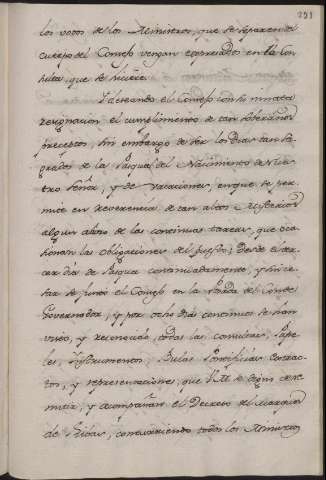 291
los votos de los Ministros, que se separen del
cuerpo del Consejo vengan expresados en la Con
sulta, que se hiciere.
Y deseando el Consejo con su innata
resignacion el cumplimento de tan soberanos
preceptos, sin embargo de ser los dias tan sa
grados de la Pasqua del Nacimiento de Nues
tro Señor, y de vacaciones, en que se per
mite en reverencia de tan altos Misterios
algun alivio de las continuas tareas, que oca
sionan las obligaciones del ; desde el ter
cer dia de Pasqua continuadamente, y sin ce
sar se juntó el Consejo en la Posada del Conde
Governador, y por ocho dias continuos se han
visto, y reconocido todas las consultas, Pape
les, Instrumentos, Bulas Pontificias Extrac
tos, y representaciones, que V.M. se dignó re
mitir, y acompañan el Decreto del Marques
de Ribas, concurriendo todos los Ministros